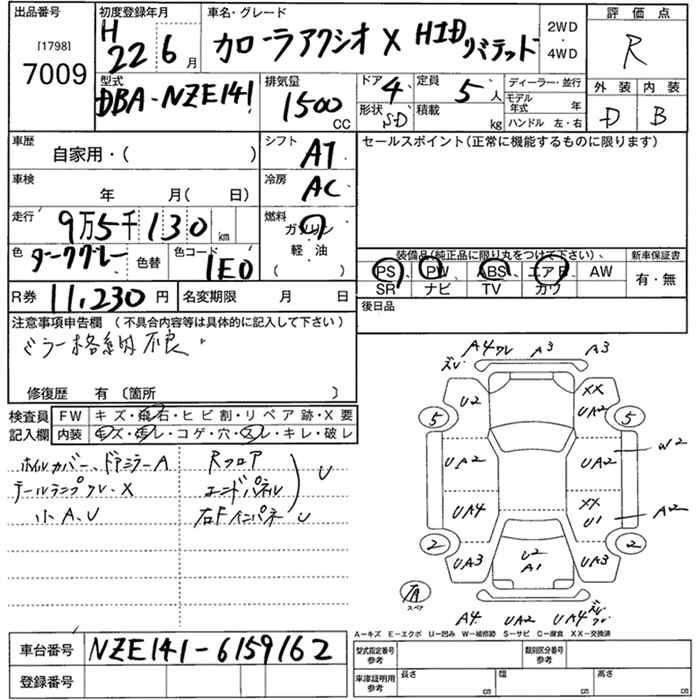 出品番号 初度登録年月 車名・グレード 評価点
[1798] 7009
H 22 6月
カローラアクシオ X HIDリミテッド
2WD・4WD
R
型式 排気量 ドア 4 定員 5人 ディーラー・並行
DBA-NZE141 1500CC
形状 SD 積載 kg モデル年式 年
ハンドル 左・右
外装 内装
D B
車歴 自家用・( )
シフト AT
セールスポイント(正常に機能するものに限ります)
車検 年 月( 日)
冷房 AC
走行 9万5千130km
燃料 ガソリン・軽油 ( )
色 ダークグレー 色替 色コード 1E0
装備品(純正品に限り丸をつけて下さい)、 新車保証書
PS、PW、ABS、エアB、AW 有・無
SR ナビ TV カワ
R券 11,230円 名変期限 月 日
後日品
注意事項申告欄 (不具合内容等は具体的に記入して下さい)
ミラー格納不良
修復歴 有〔箇所 〕
検査員記入欄
FW キズ・飛石・ヒビ割・リペア跡・X要
内装 キズ・汚レ・コゲ・穴・スレ・キレ・破レ
ホイルカバー、ドアミラーA Rフロア
テールランプワレ、X エンドパネル U
小A、U 右Fインパネ U
ズレ A4ワレ A3 A3
U2 XX UA2
5 5
UA2 UA2 W2
UA4 XX U1 A2
2 2
UA3 U2 A1 UA3
有 スペア
A4 UA2 UA4 ズレワレ
A-キズ E-エクボ U-凹み W-補修跡 S-サビ C-腐食 XX-交換済
車台番号 NZE141-6159162
登録番号
型式指定番号 参考 類別区分番号 参考
車庫証明用 参考 長さ cm 幅 cm 高さ cm